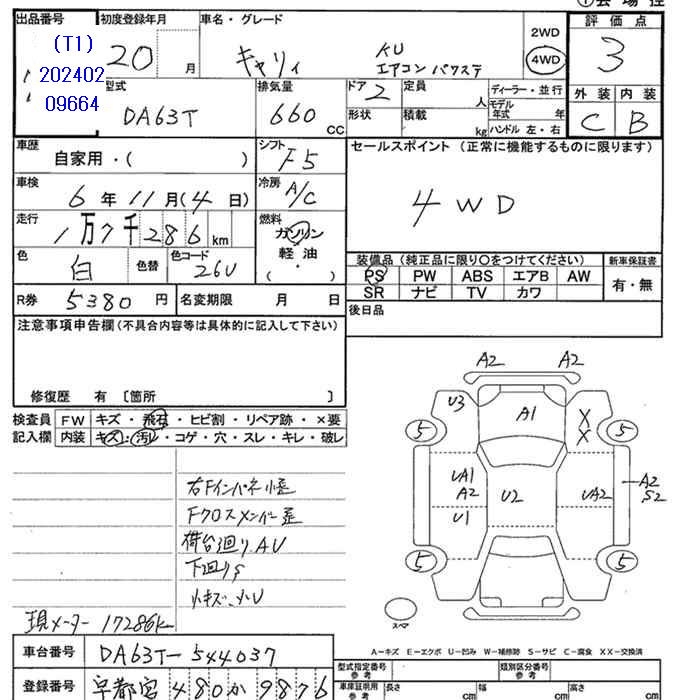 ① 会 場 控
出品番号 初度登録年月 車名・グレード 2WD 評 価 点
(T1) 20 月 キャリィ KU 4WD 3
202402 エアコン パワステ
09664
型式 排気量 ドア 2 定員 人 ディーラー・並行 外 装 内 装
DA63T 660 CC 形状 積載 kg モデル年式 年 C B
ハンドル 左・右
車歴 シフト セールスポイント (正常に機能するものに限ります)
自家用・( ) F5
車検 6 年 11 月 (4 日) 冷房 A/C 4WD
走行 1万7千286 km 燃料 ガソリン
軽 油
( ・ )
色 白 色替 色コード 26U 装備品 (純正品に限り〇をつけてください) 新車保証書
PS PW ABS エアB AW 有・無
R券 5380 円 名変期限 月 日 SR ナビ TV カワ
注意事項申告欄(不具合内容等は具体的に記入して下さい) 後日品
修復歴 有 [箇所 ]
検査員 FW キズ・飛石・ヒビ割・リペア跡・×要
記入欄 内装 キズ・汚レ・コゲ・穴・スレ・キレ・破レ
A2 A2
U3 A1 X
X
5 5
UA1 A2
A2 U2 UA2 S2
U1
5 5
スペア
右Fインパネ小歪
Fクロスメンバー歪
荷台廻り AU
下廻りS
小キズ、小U
現メーター 17286k
A-キズ E-エクボ U-凹み W-補修跡 S-サビ C-腐食 XX-交換済
車台番号 DA63T-544037 型式指定番号 参 考 類別区分番号 参 考
登録番号 宇都宮 480 か 9876 車庫証明用 参 考 長さ cm 幅 cm 高さ cm